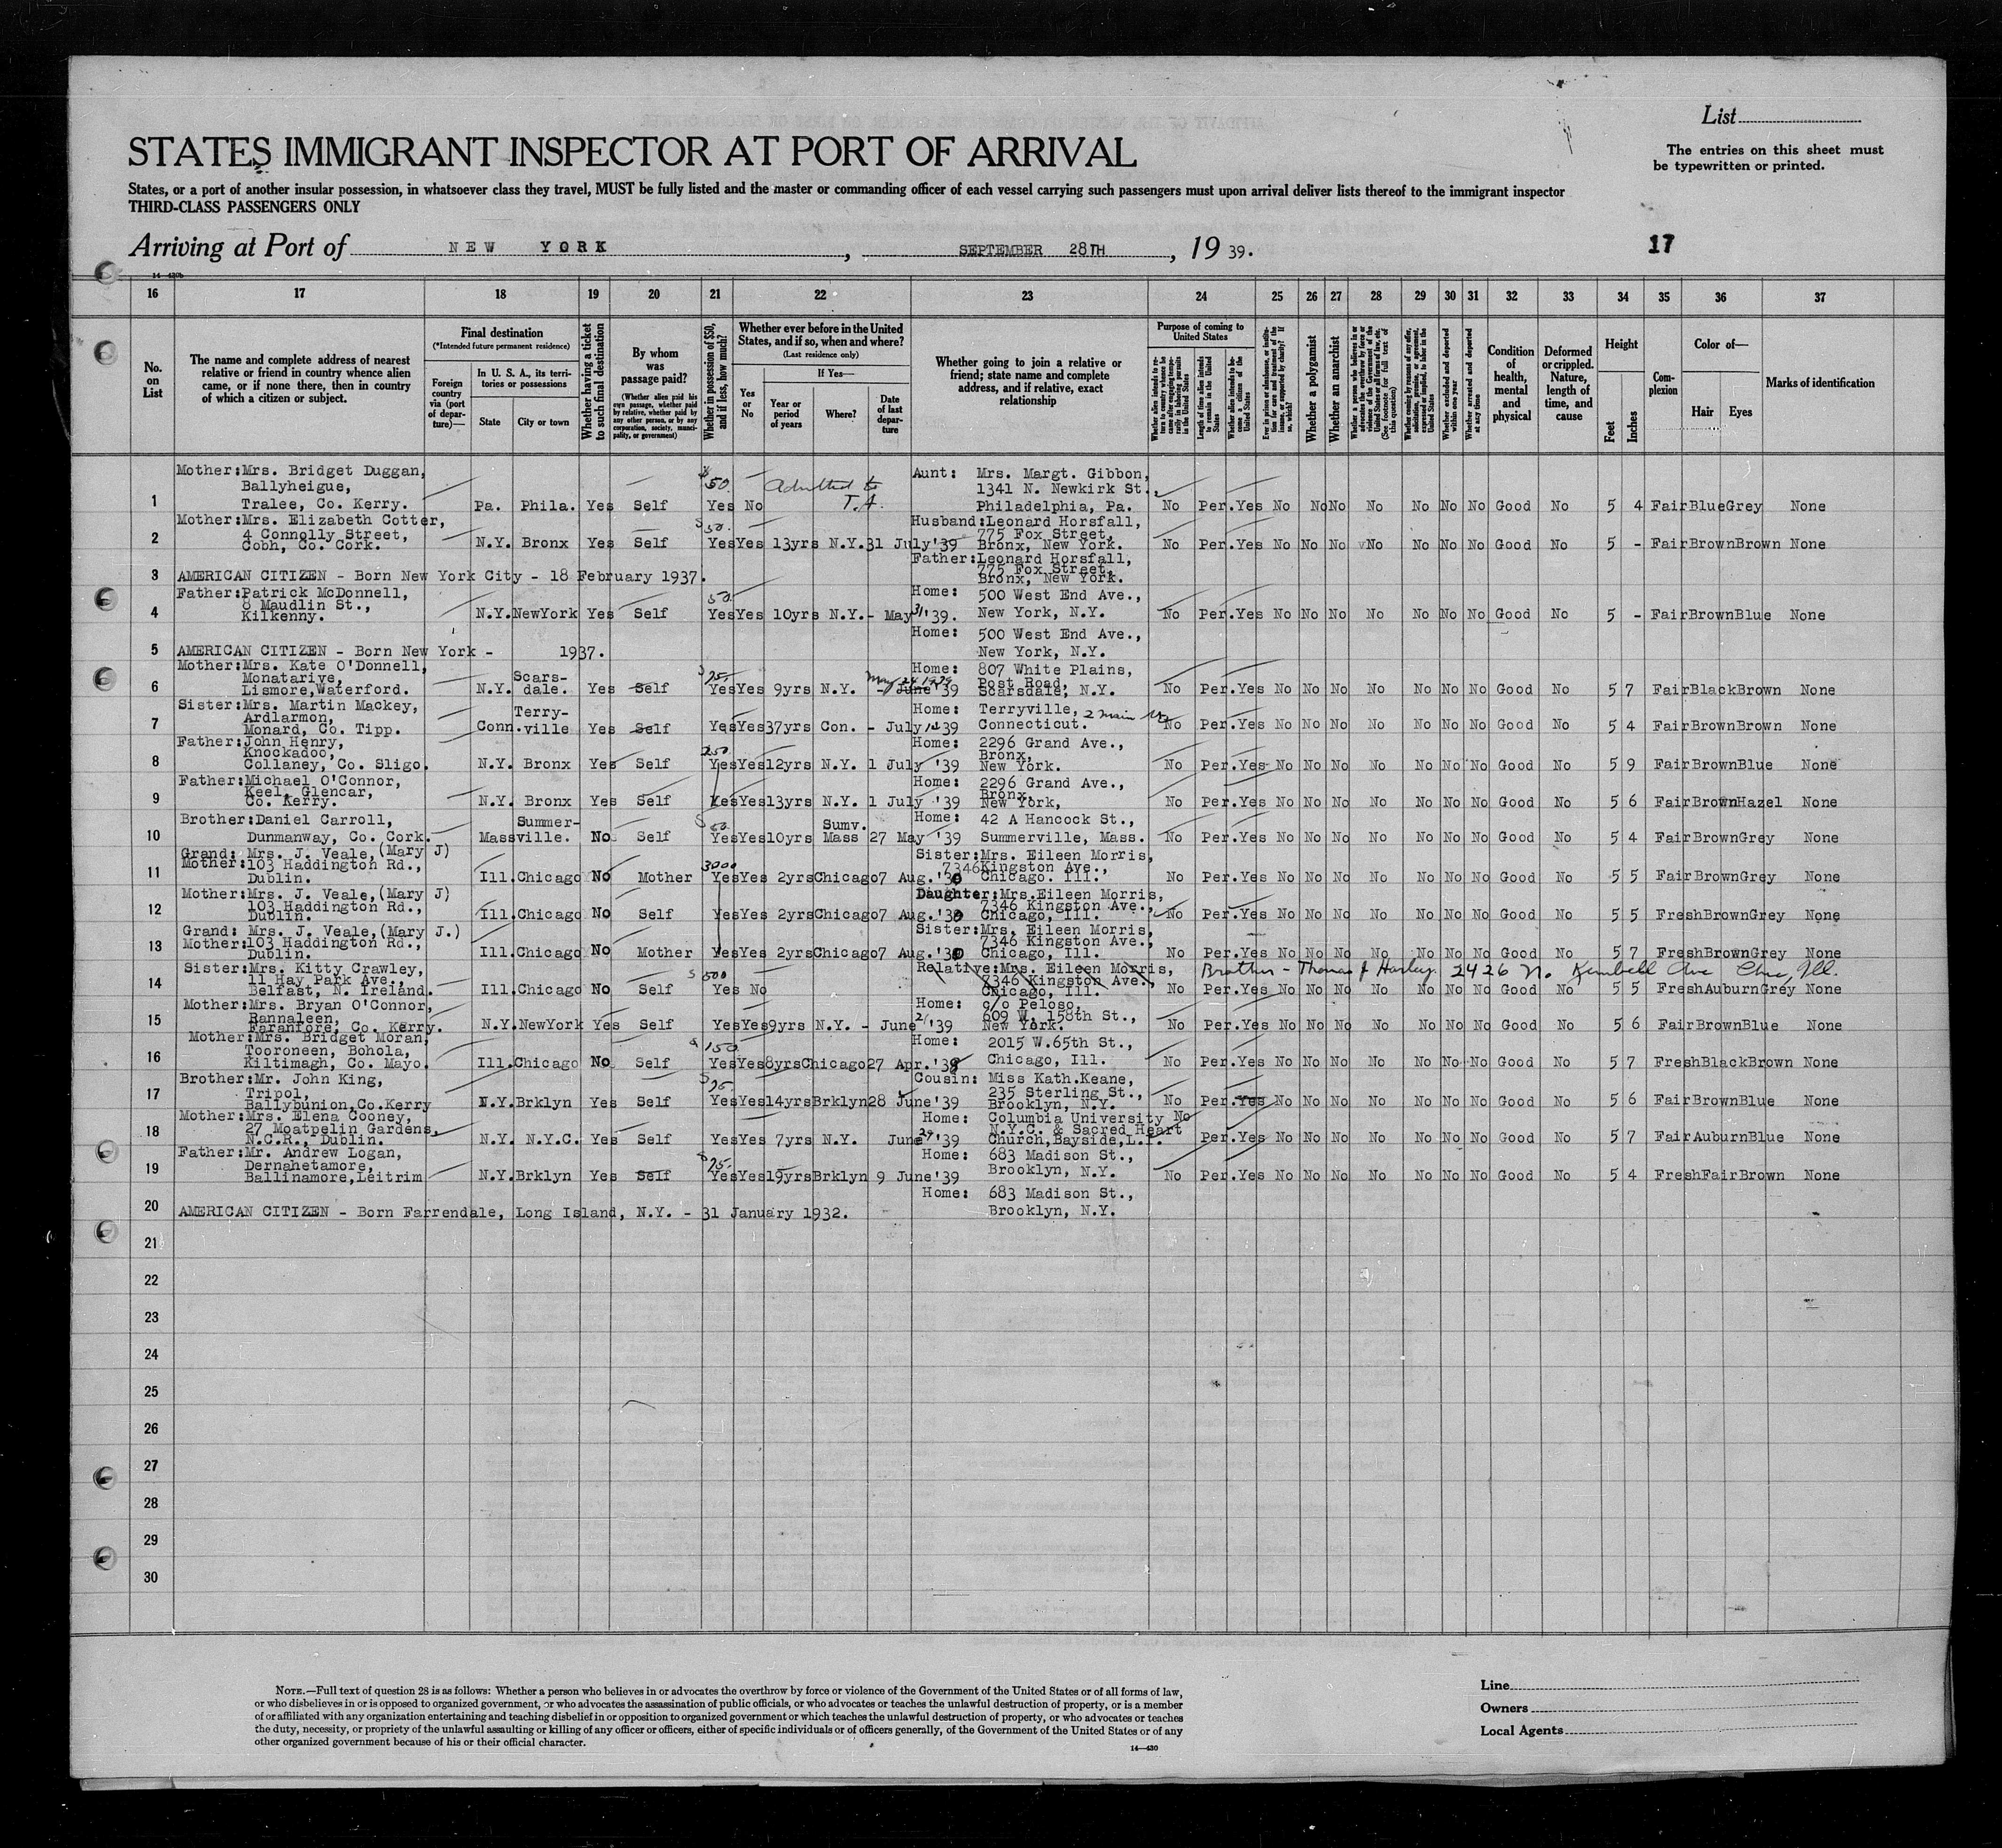 List
STATES IMMIGRANT INSPECTOR AT PORT OF ARRIVAL
The entries on this sheet must
be typewritten or printed.
States, or a port of another insular possession, in whatsoever class they travel, MUST be fully listed and the master or commanding officer of each vessel carrying such passengers must upon arrival deliver lists thereof to the immigrant inspector
THIRD-CLASS PASSENGERS ONLY
Arriving at Port of NEW YORK, SEPTEMBER 28TH, 19 39.
17
14-430b
16 17 18 19 20 21 22 23 24 25 26 27 28 29 30 31 32 33 34 35 36 37
No. on List
The name and complete address of nearest relative or friend in country whence alien came, or if none there, then in country of which a citizen or subject.
Final destination
(*Intended future permanent residence)
Foreign country via (port of departure)—
In U. S. A., its territories or possessions
State
City or town
Whether having a ticket to such final destination
By whom was passage paid?
(Whether alien paid his own passage, whether paid by relative, whether paid by any other person, or by any corporation, society, municipality, or government)
Whether in possession of $50, and if less, how much?
Whether ever before in the United States, and if so, when and where?
(Last residence only)
If Yes—
Yes or No
Year or period of years
Where?
Date of last departure
Whether going to join a relative or friend; state name and complete address, and if relative, exact relationship
Purpose of coming to United States
Length of time alien intends to remain in the United States
Whether alien intends to become a citizen of the United States
Whether a polygamist
Whether an anarchist
Whether excluded and deported within one year
Whether arrested and deported at any time
Condition of health, mental and physical
Deformed or crippled. Nature, length of time, and cause
Height
Feet
Inches
Complexion
Color of—
Hair
Eyes
Marks of identification
1 Mother: Mrs. Bridget Duggan, Ballyheigue, Tralee, Co. Kerry. Pa. Phila. Yes Self $50. Yes No Admitted to T.A. Aunt: Mrs. Margt. Gibbon, 1341 N. Newkirk St., Philadelphia, Pa. No Per. Yes No No No No No No No Good No 5 4 Fair Blue Grey None
2 Mother: Mrs. Elizabeth Cotter, 4 Connolly Street, Cobh, Co. Cork. N.Y. Bronx Yes Self $50. Yes Yes 13yrs N.Y. 31 July '39 Husband: Leonard Horsfall, 775 Fox Street, Bronx, New York. No Per. Yes No No No No No No No Good No 5 - Fair Brown Brown None
3 AMERICAN CITIZEN - Born New York City - 18 February 1937. Father: Leonard Horsfall, 775 Fox Street, Bronx, New York.
4 Father: Patrick McDonnell, 8 Maudlin St., Kilkenny. N.Y. NewYork Yes Self 50. Yes Yes 10yrs N.Y. - May 31 '39. Home: 500 West End Ave., New York, N.Y. No Per. Yes No No No No No No No Good No 5 - Fair Brown Blue None
5 AMERICAN CITIZEN - Born New York - 1937. Home: 500 West End Ave., New York, N.Y.
6 Mother: Mrs. Kate O'Donnell, Monatarive, Lismore, Waterford. N.Y. Scarsdale. Yes Self $75. Yes Yes 9yrs N.Y. May 24 1939 - June '39 Home: 807 White Plains, Post Road, Scarsdale, N.Y. No Per. Yes No No No No No No No Good No 5 7 Fair Black Brown None
7 Sister: Mrs. Martin Mackey, Ardlarmon, Monard, Co. Tipp. Conn. Terryville Yes Self Yes Yes 37yrs Con. - July '39 Home: Terryville, Connecticut. 2 Main No Per. Yes No No No No No No No Good No 5 4 Fair Brown Brown None
8 Father: John Henry, Knockadoo, Collaney, Co. Sligo. N.Y. Bronx Yes Self 250 Yes Yes 12yrs N.Y. 1 July '39 Home: 2296 Grand Ave., Bronx, New York. No Per. Yes No No No No No No No Good No 5 9 Fair Brown Blue None
9 Father: Michael O'Connor, Keel, Glencar, Co. Kerry. N.Y. Bronx Yes Self Yes Yes 13yrs N.Y. 1 July '39 Home: 2296 Grand Ave., Bronx, New York, No Per. Yes No No No No No No No Good No 5 6 Fair Brown Hazel None
10 Brother: Daniel Carroll, Dunmanway, Co. Cork. Mass Summerville. No Self $50. Yes Yes 10yrs Sumv. Mass 27 May '39 Home: 42 A Hancock St., Summerville, Mass. No Per. Yes No No No No No No No Good No 5 4 Fair Brown Grey None
11 Grand: Mother: Mrs. J. Veale, (Mary J) 103 Haddington Rd., Dublin. Ill. Chicago No Mother 3000 Yes Yes 2yrs Chicago 7 Aug. '30 Sister: Mrs. Eileen Morris, 7346 Kingston Ave., Chicago. Ill. No Per. Yes No No No No No No No Good No 5 5 Fair Brown Grey None
12 Mother: Mrs. J. Veale, (Mary J) 103 Haddington Rd., Dublin. Ill. Chicago No Self Yes Yes 2yrs Chicago 7 Aug. '30 Daughter: Mrs. Eileen Morris, 7346 Kingston Ave., Chicago, Ill. No Per. Yes No No No No No No No Good No 5 5 Fresh Brown Grey None
13 Grand: Mother: Mrs. J. Veale, (Mary J.) 103 Haddington Rd., Dublin. Ill. Chicago No Mother Yes Yes 2yrs Chicago 7 Aug. '30 Sister: Mrs. Eileen Morris, 7346 Kingston Ave., Chicago, Ill. No Per. Yes No No No No No No No Good No 5 7 Fresh Brown Grey None
14 Sister: Mrs. Kitty Crawley, 11 Hay Park Ave., Belfast, N. Ireland. Ill. Chicago No Self $500 Yes No Relative: Mrs. Eileen Morris, 7346 Kingston Ave., Chicago, Ill. Brother - Thomas J Hanley. 2426 N. Kimbell Ave Chic, Ill. No Per. Yes No No No No No No No Good No 5 5 Fresh Auburn Grey None
15 Mother: Mrs. Bryan O'Connor, Rannaleen, Faranfore, Co. Kerry. N.Y. NewYork Yes Self Yes Yes 9yrs N.Y. - June '39 Home: c/o Peloso, 609 W. 158th St., New York. No Per. Yes No No No No No No No Good No 5 6 Fair Brown Blue None
16 Mother: Mrs. Bridget Moran, Tooroneen, Bohola, Kiltimagh, Co. Mayo. Ill. Chicago No Self $150. Yes Yes 8yrs Chicago 27 Apr. '38 Home: 2015 W. 65th St., Chicago, Ill. No Per. Yes No No No No No No No Good No 5 7 Fresh Black Brown None
17 Brother: Mr. John King, Tripol, Ballybunion, Co. Kerry N.Y. Brklyn Yes Self $75. Yes Yes 14yrs Brklyn 28 June '39 Cousin: Miss Kath. Keane, 235 Sterling St., Brooklyn, N.Y. No Per. Yes No No No No No No No Good No 5 6 Fair Brown Blue None
18 Mother: Mrs. Elena Cooney, 27 Moatpelin Gardens, N.C.R., Dublin. N.Y. N.Y.C. Yes Self Yes Yes 7yrs N.Y. June 29 '39 Home: Columbia University N.Y.C. & Sacred Heart Church, Bayside, L.I. No Per. Yes No No No No No No No Good No 5 7 Fair Auburn Blue None
19 Father: Mr. Andrew Logan, Dernahetamore, Ballinamore, Leitrim N.Y. Brklyn Yes Self $75. Yes Yes 19yrs Brklyn 9 June '39 Home: 683 Madison St., Brooklyn, N.Y. No Per. Yes No No No No No No No Good No 5 4 Fresh Fair Brown None
20 AMERICAN CITIZEN - Born Farrendale, Long Island, N.Y. - 31 January 1932. Home: 683 Madison St., Brooklyn, N.Y.
21
22
23
24
25
26
27
28
29
30
NOTE.—Full text of question 28 is as follows: Whether a person who believes in or advocates the overthrow by force or violence of the Government of the United States or of all forms of law,
or who disbelieves in or is opposed to organized government, or who advocates the assassination of public officials, or who advocates or teaches the unlawful destruction of property, or is a member
of or affiliated with any organization entertaining and teaching disbelief in or opposition to organized government or which teaches the unlawful destruction of property, or who advocates or teaches
the duty, necessity, or propriety of the unlawful assaulting or killing of any officer or officers, either of specific individuals or of officers generally, of the Government of the United States or of any
other organized government because of his or their official character.
14—430
Line
Owners
Local Agents